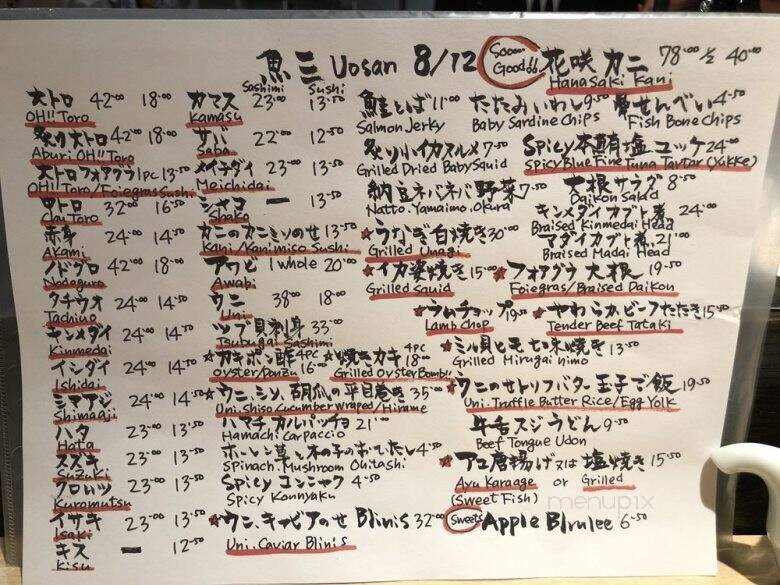 魚三 Uosan 8/12
Soooo Good!!
花咲カニ 78.00 1/2 40.00
Hanasaki Kani
Sashimi Sushi
大トロ 42.00 18.00
OH!! Toro
炙り大トロ 42.00 18.00
Aburi OH!! Toro
大トロフォアグラ 1pc 13.50
OH!! Toro/Foiegras Sushi
中トロ 32.00 16.50
Chu Toro
赤身 24.00 14.50
Akami
ノドグロ 42.00 18.00
Nodoguro
タチウオ 24.00 14.50
Tachiuo
キンメダイ 24.00 14.50
Kinmedai
イシダイ 24.00 14.50
Ishidai
シマアジ 24.00 14.50
Shimaaji
ハタ 23.00 13.50
Hata
スズキ 23.00 13.50
Suzuki
クロムツ 23.00 13.50
Kuromutsu
イサキ 23.00 13.50
Isaki
キス — 12.50
Kisu
カマス 23.00 13.50
Kamasu
サバ 22.00 12.50
Saba
メイチダイ 23.00 13.50
Meichidai
シャコ — 13.50
Shako
カニのカニミソのせ 13.50
Kani/Kanimiso Sushi
アワビ 1 whole 20.00
Awabi
ウニ 38.00 18.00
Uni
ツブ貝刺身 33.00
Tsubugai Sashimi
☆カキポン酢 4pc 16.00
Oyster/Ponzu
☆焼きカキ 4pc 18.00
Grilled Oyster Bomb!!
☆ウニ、シソ、胡瓜の平目巻き 35.00
Uni. Shiso Cucumber Wraped/Hirame
ハマチ カルパッチョ 21.00
Hamachi Carpaccio
ホーレン草と木の子のおひたし 4.50
Spinach. Mushroom Ohitashi
Spicy コンニャク 4.50
Spicy Konnyaku
☆ウニ、キャビアのせ Blinis 32.00
Uni. Caviar Blinis
鮭とば 11.00
Salmon Jerky
たたみいわし 9.50
Baby Sardine Chips
骨せんべい 4.50
Fish Bone Chips
炙り小イカスルメ 7.50
Grilled Dried Baby Squid
Spicy 本鮪塩ユッケ 24.00
Spicy Blue Fine Tuna Tartar (Yukke)
納豆ネバネバ野菜 7.50
Natto. Yamaimo. Okura
大根サラダ 8.50
Daikon Salad
キンメダイカブト煮 24.00
Braised Kinmedai Head
☆うなぎ白焼き 30.00
Grilled Unagi
マダイカブト煮 21.00
Braised Madai Head
☆イカ姿焼き 15.00
Grilled Squid
☆フォアグラ大根 19.50
Foiegras/Braised Daikon
☆ラムチョップ 19.50
Lamb Chop
☆やわらかビーフたたき 15.50
Tender Beef Tataki
☆ミル貝ヒモ七味焼き 13.50
Grilled Mirugai himo
☆ウニのせトリフバター玉子ご飯 19.50
Uni. Truffle Butter Rice/Egg Yolk
牛舌スジうどん 9.50
Beef Tongue Udon
☆アユ唐揚げ又は塩焼き 15.50
Ayu Karaage or Grilled
(Sweet Fish)
Sweets Apple Blrulee 6.50
menupix